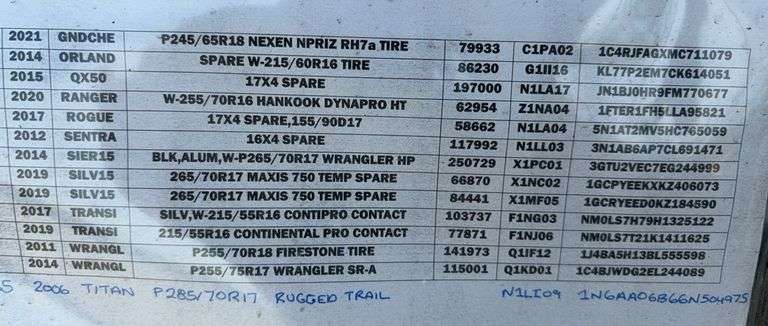 2021 GNDCHE P245/65R18 NEXEN NPRIZ RH7a TIRE 79933 C1PA02 1C4RJFAGXMC711079
2014 ORLAND SPARE W-215/60R16 TIRE 86230 G1II16 KL77P2EM7CK614051
2015 QX50 17X4 SPARE 197000 N1LA17 JN1BJ0HR9FM770677
2020 RANGER W-255/70R16 HANKOOK DYNAPRO HT 62954 Z1NA04 1FTER1FH5LLA95821
2017 ROGUE 17X4 SPARE,155/90D17 58662 N1LA04 5N1AT2MV5HC765059
2012 SENTRA 16X4 SPARE 117992 N1LL03 3N1AB6AP7CL691471
2014 SIER15 BLK,ALUM,W-P265/70R17 WRANGLER HP 250729 X1PC01 3GTU2VEC7EG244999
2019 SILV15 265/70R17 MAXIS 750 TEMP SPARE 66870 X1NC02 1GCPYEEKXKZ406073
2019 SILV15 265/70R17 MAXIS 750 TEMP SPARE 84441 X1MF05 1GCRYEED0KZ184590
2017 TRANSI SILV,W-215/55R16 CONTIPRO CONTACT 103737 F1NG03 NM0LS7H79H1325122
2019 TRANSI 215/55R16 CONTINENTAL PRO CONTACT 77871 F1NJ06 NM0LS7T21K1411625
2011 WRANGL P255/70R18 FIRESTONE TIRE 141973 Q1IF12 1J4BA5H13BL555598
2014 WRANGL P255/75R17 WRANGLER SR-A 115001 Q1KD01 1C4BJWDG2EL244089
S 2006 TITAN P285/70R17 RUGGED TRAIL N1LI09 1N6AA06B66N504975